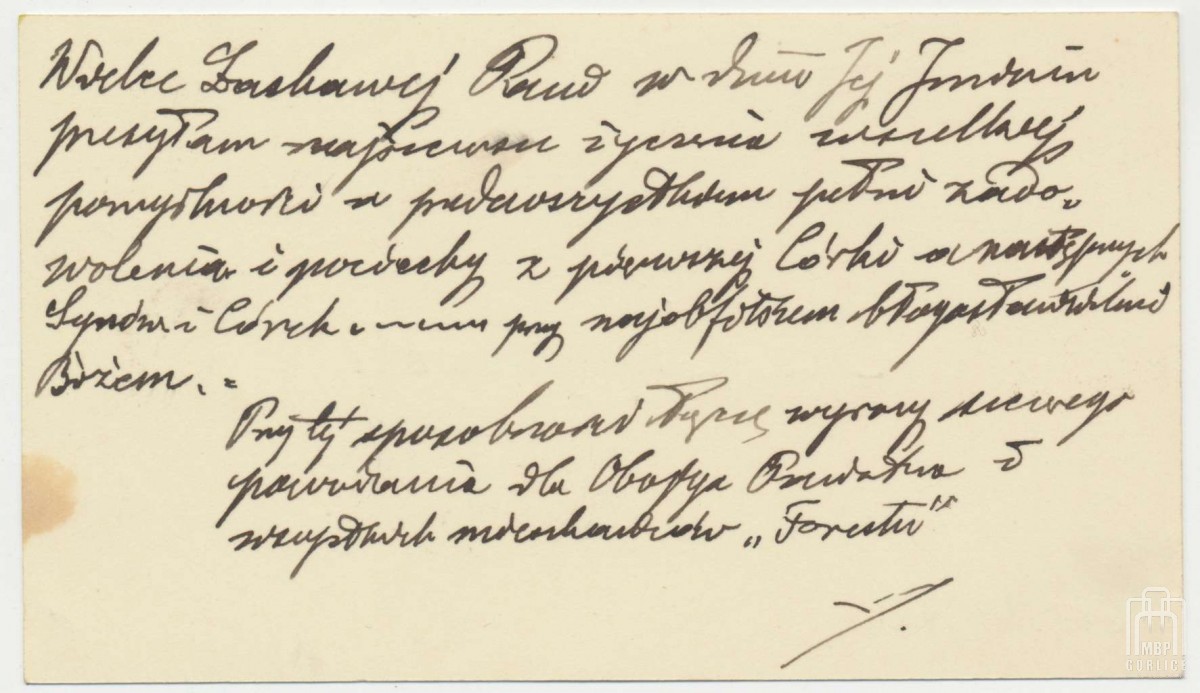 Wielce Łaskawej Pani w dniu Jej Imienin
przesyłam najszczersze życzenia wszelkiej
pomyślności a przedewszystkiem pełni zado„
wolenia i pociechy z pierwszej Córki a następnych
Synów i Córek przy najobfitszem błogosławieństwie
Bożem. =
Przy tej sposobności łączę wyrazy szczerego
poważania dla Obojga Państwa i
wszystkich mieszkańców „Forestu"
MBP
GORLICE